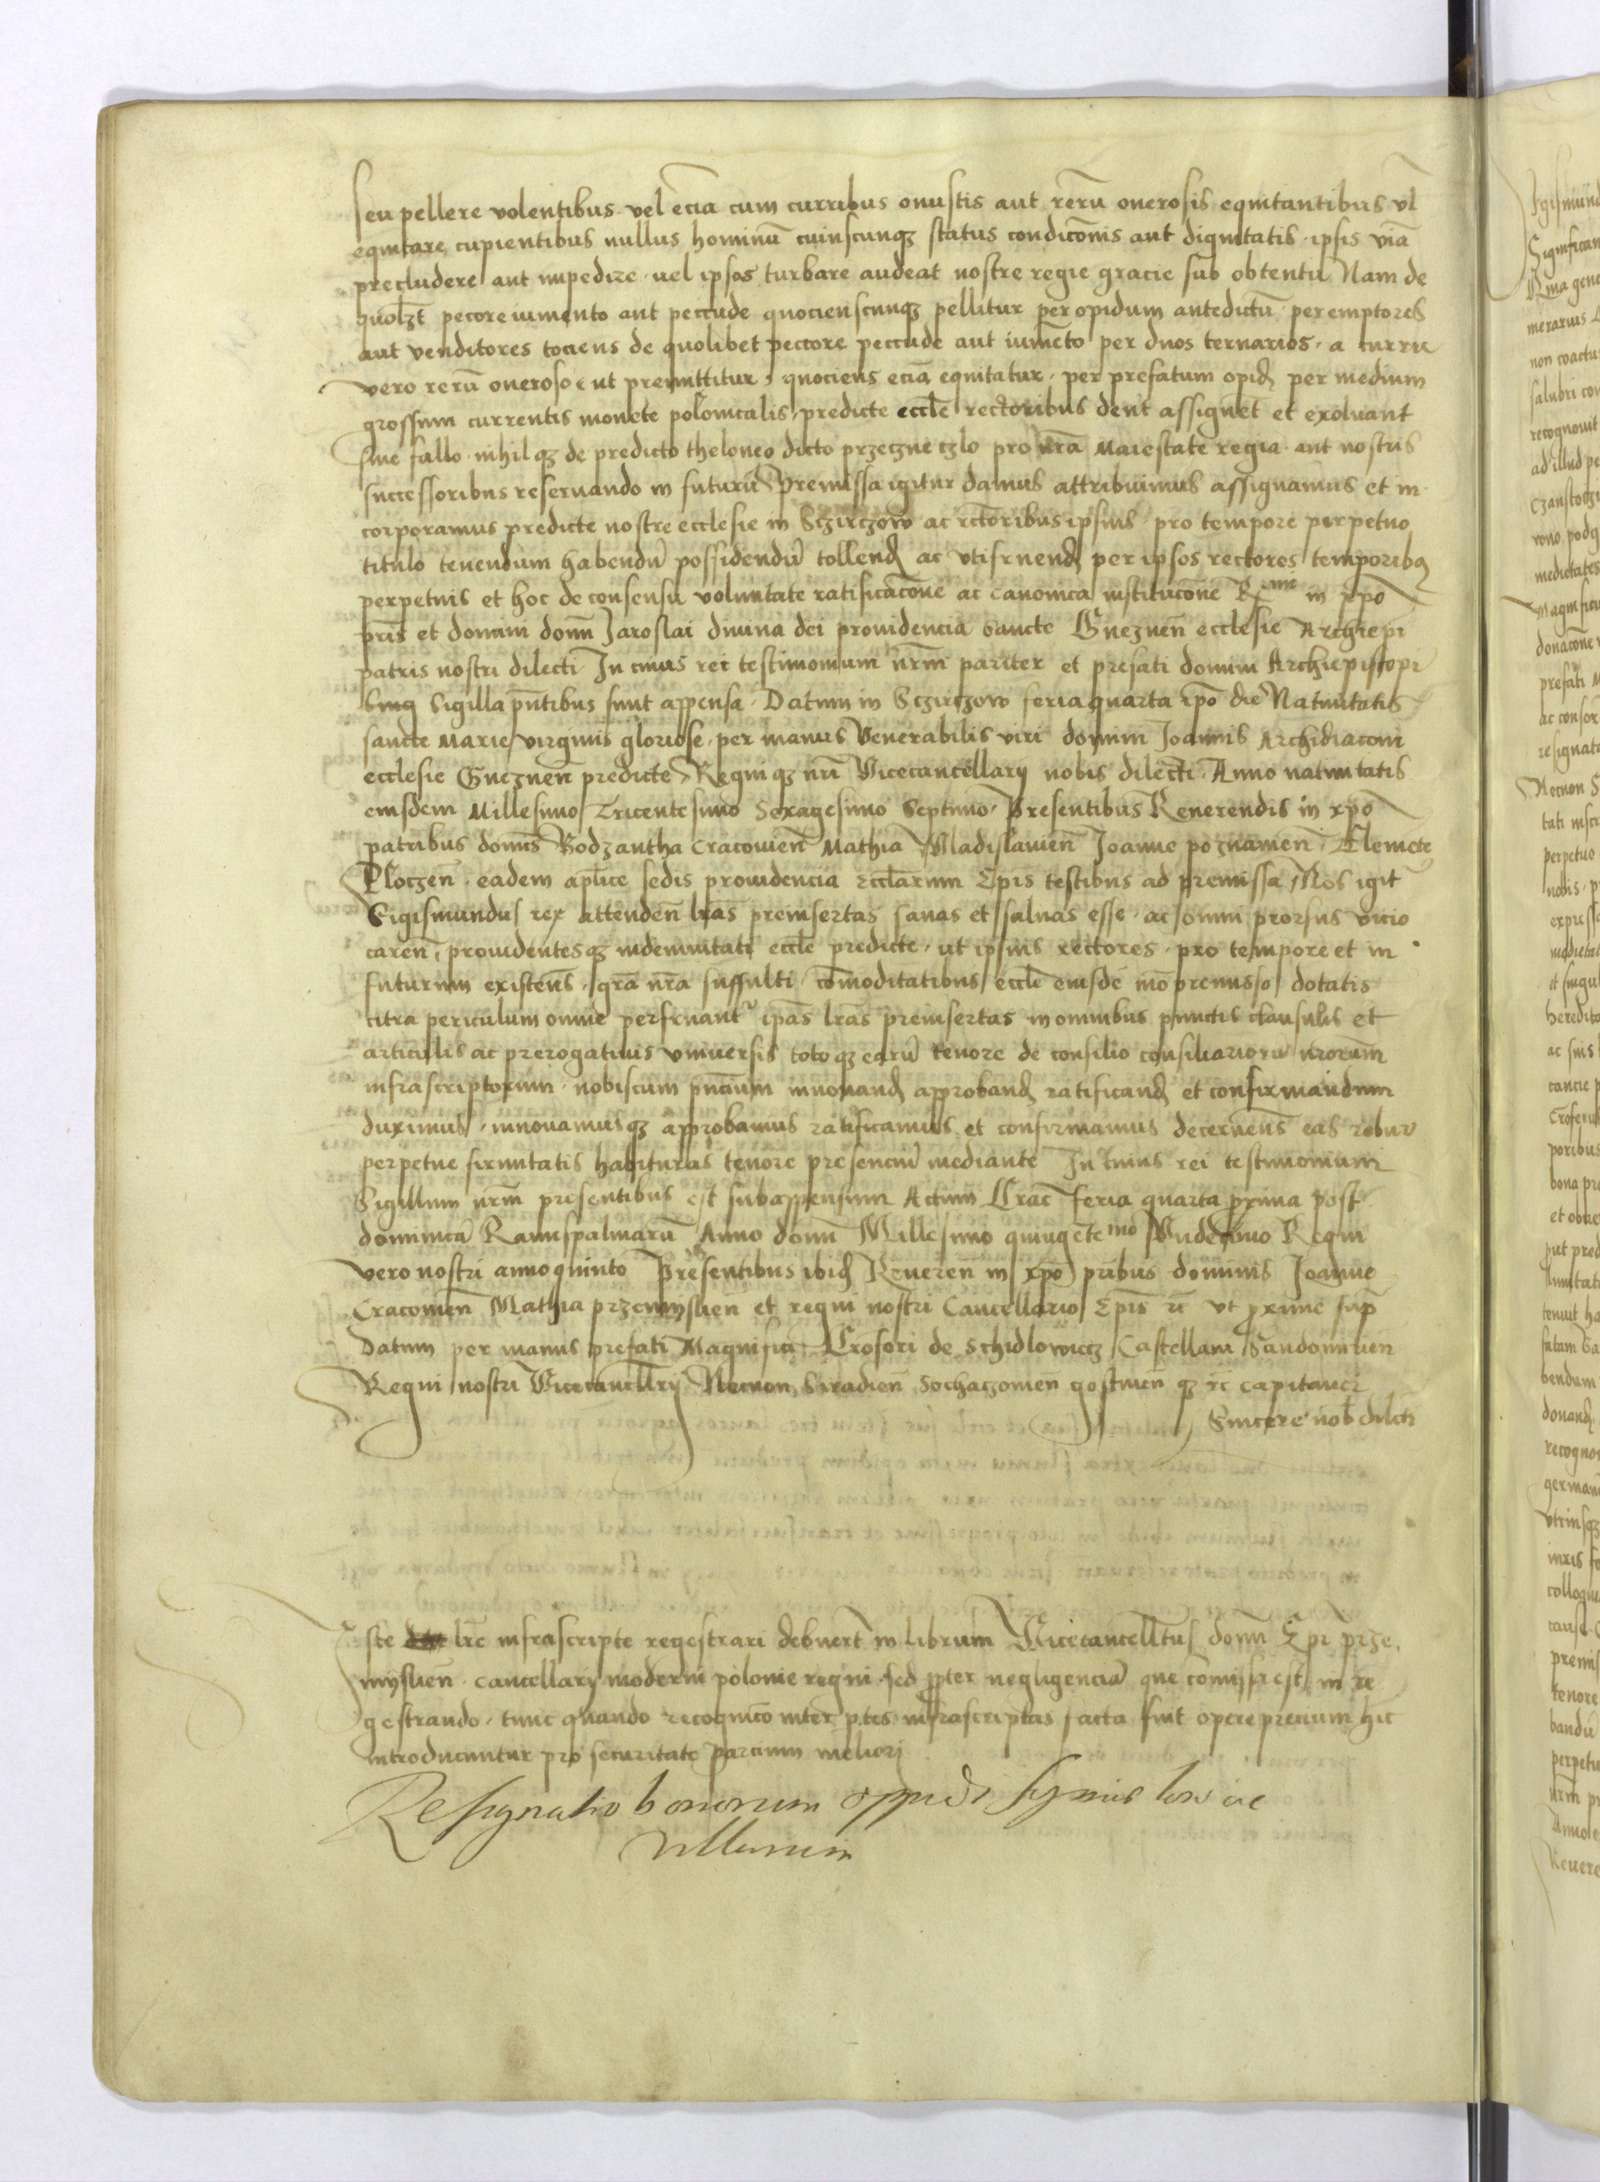 seu pellere volentibus vel ecia cum curribus onustis aut reru onerosis equitantibus vl
equitare cupientibus nullus hominu cuiuscunqz status condicois aut dignitatis ipsis via
precludere aut impedire vel ipsos turbare audeat nostre regie gracie sub obtentu Nam de
quolzt pecore iumento aut peccude quocienscunqz pellitur per opidum antedictu per emptores
aut venditores tociens de quolibet peccore peccude aut iumeto per duos ternarios a curru
vero reru oneroso ut premittitur quociens ecia equitatur per prefatum opid per medium
grossum currentis monete polonicalis predicte eccle rectoribus dent assignet et exoluant
sine fallo nihilqz de predicto theloneo dicto przeczne czlo pro nra Maiestate regia aut nostris
successoribus reseruando in futuru Premissa igitur damus attribuimus assignamus et in
corporamus predicte nostre ecclesie in Sczirczow ac rectoribus ipsius pro tempore perpetuo
titulo tenendum habendu possidendu tollend ac vtifruend per ipsos rectores temporibq
perpetuis et hoc de consensu voluntate ratificacone ac canonica institucone Rmi in xpo
pris et domini domi Jaroslai diuina dei prouidencia sancte Gneznen ecclesie Archiepi
patris nostri dilecti In cuius rei testimonium nrm pariter et prefati domini Archiepiscopi
Sigilla pntibus sunt appensa Datum in Sczirczow feria quarta ipo die Natiuitatis
sancte Marie virginis gloriose per manus Venerabilis viri domini Joannis Archidiaconi
ecclesie Gneznen predicte Regniqz nri Vicecancellarij nobis dilecti Anno natiuitatis
eiusdem Millesimo Tricentesimo Sexagesimo Septimo Presentibus Reuerendis in xpo
patribus domis Bodzantha Cracouien Mathia Wladislauien Joanne poznanien Clemete
Ploczen eadem aplice sedis prouidencia ecclarum Epis testibus ad premissa Nos igit
Sigismundus rex attenden lras preinsertas sanas et saluas esse ac omni prorsus vicio
caren prouidentesqz indemnitati eccle predicte ut ipsius rectores pro tempore et in
futurum existens gra nra suffulti comoditatibus eccle eiusde mo premisso dotatis
citra periculum omne perfruant ipas lras preinsertas in omnibus punctis clausulis et
articulis ac prerogatiuis vniuersis totoqz earu tenore de consilio consiliarioru nrorum
infrascriptorum nobiscum pncium innouand approband ratificand et confirmandum
duximus innouamusqz approbamus ratificamus et confirmamus decernens eas robur
perpetue firmitatis habituras tenore presenciu mediante In cuius rei testimonium
Sigillum nrm presentibus est subappensum Actum Crac feria quarta proxima post
dominica Ramispalmaru Anno domi Millesimo quingetemo Vndecimo Regni
vero nostri anno quinto Presentibus ibid Reueren in xpo pribus dominis Joanne
Cracouien Mathia przemyslien et regni nostri Cancellario Epis rc vt proxime sup
Datum per manus prefati Magnifici Crofori de Schidlowicz Castellani Sandomirien
Regni nostri Vicecancellrij Necnon Siradien Sochaczouien gostinen qz rc Capitanei
Sincere nob dilcti
Iste lre infrascripte regestrari debuert in librum Vicecancelltus domi Epi prze
myslien cancellarij moderni polonie regni sed ppter negligencia que comissa est in re
gestrando tunc quando recognico inter ptes infrascriptas facta fuit opere precium hic
introducuntur pro securitate parcium meliori
Resignatio bonorum oppidi ac
villarum